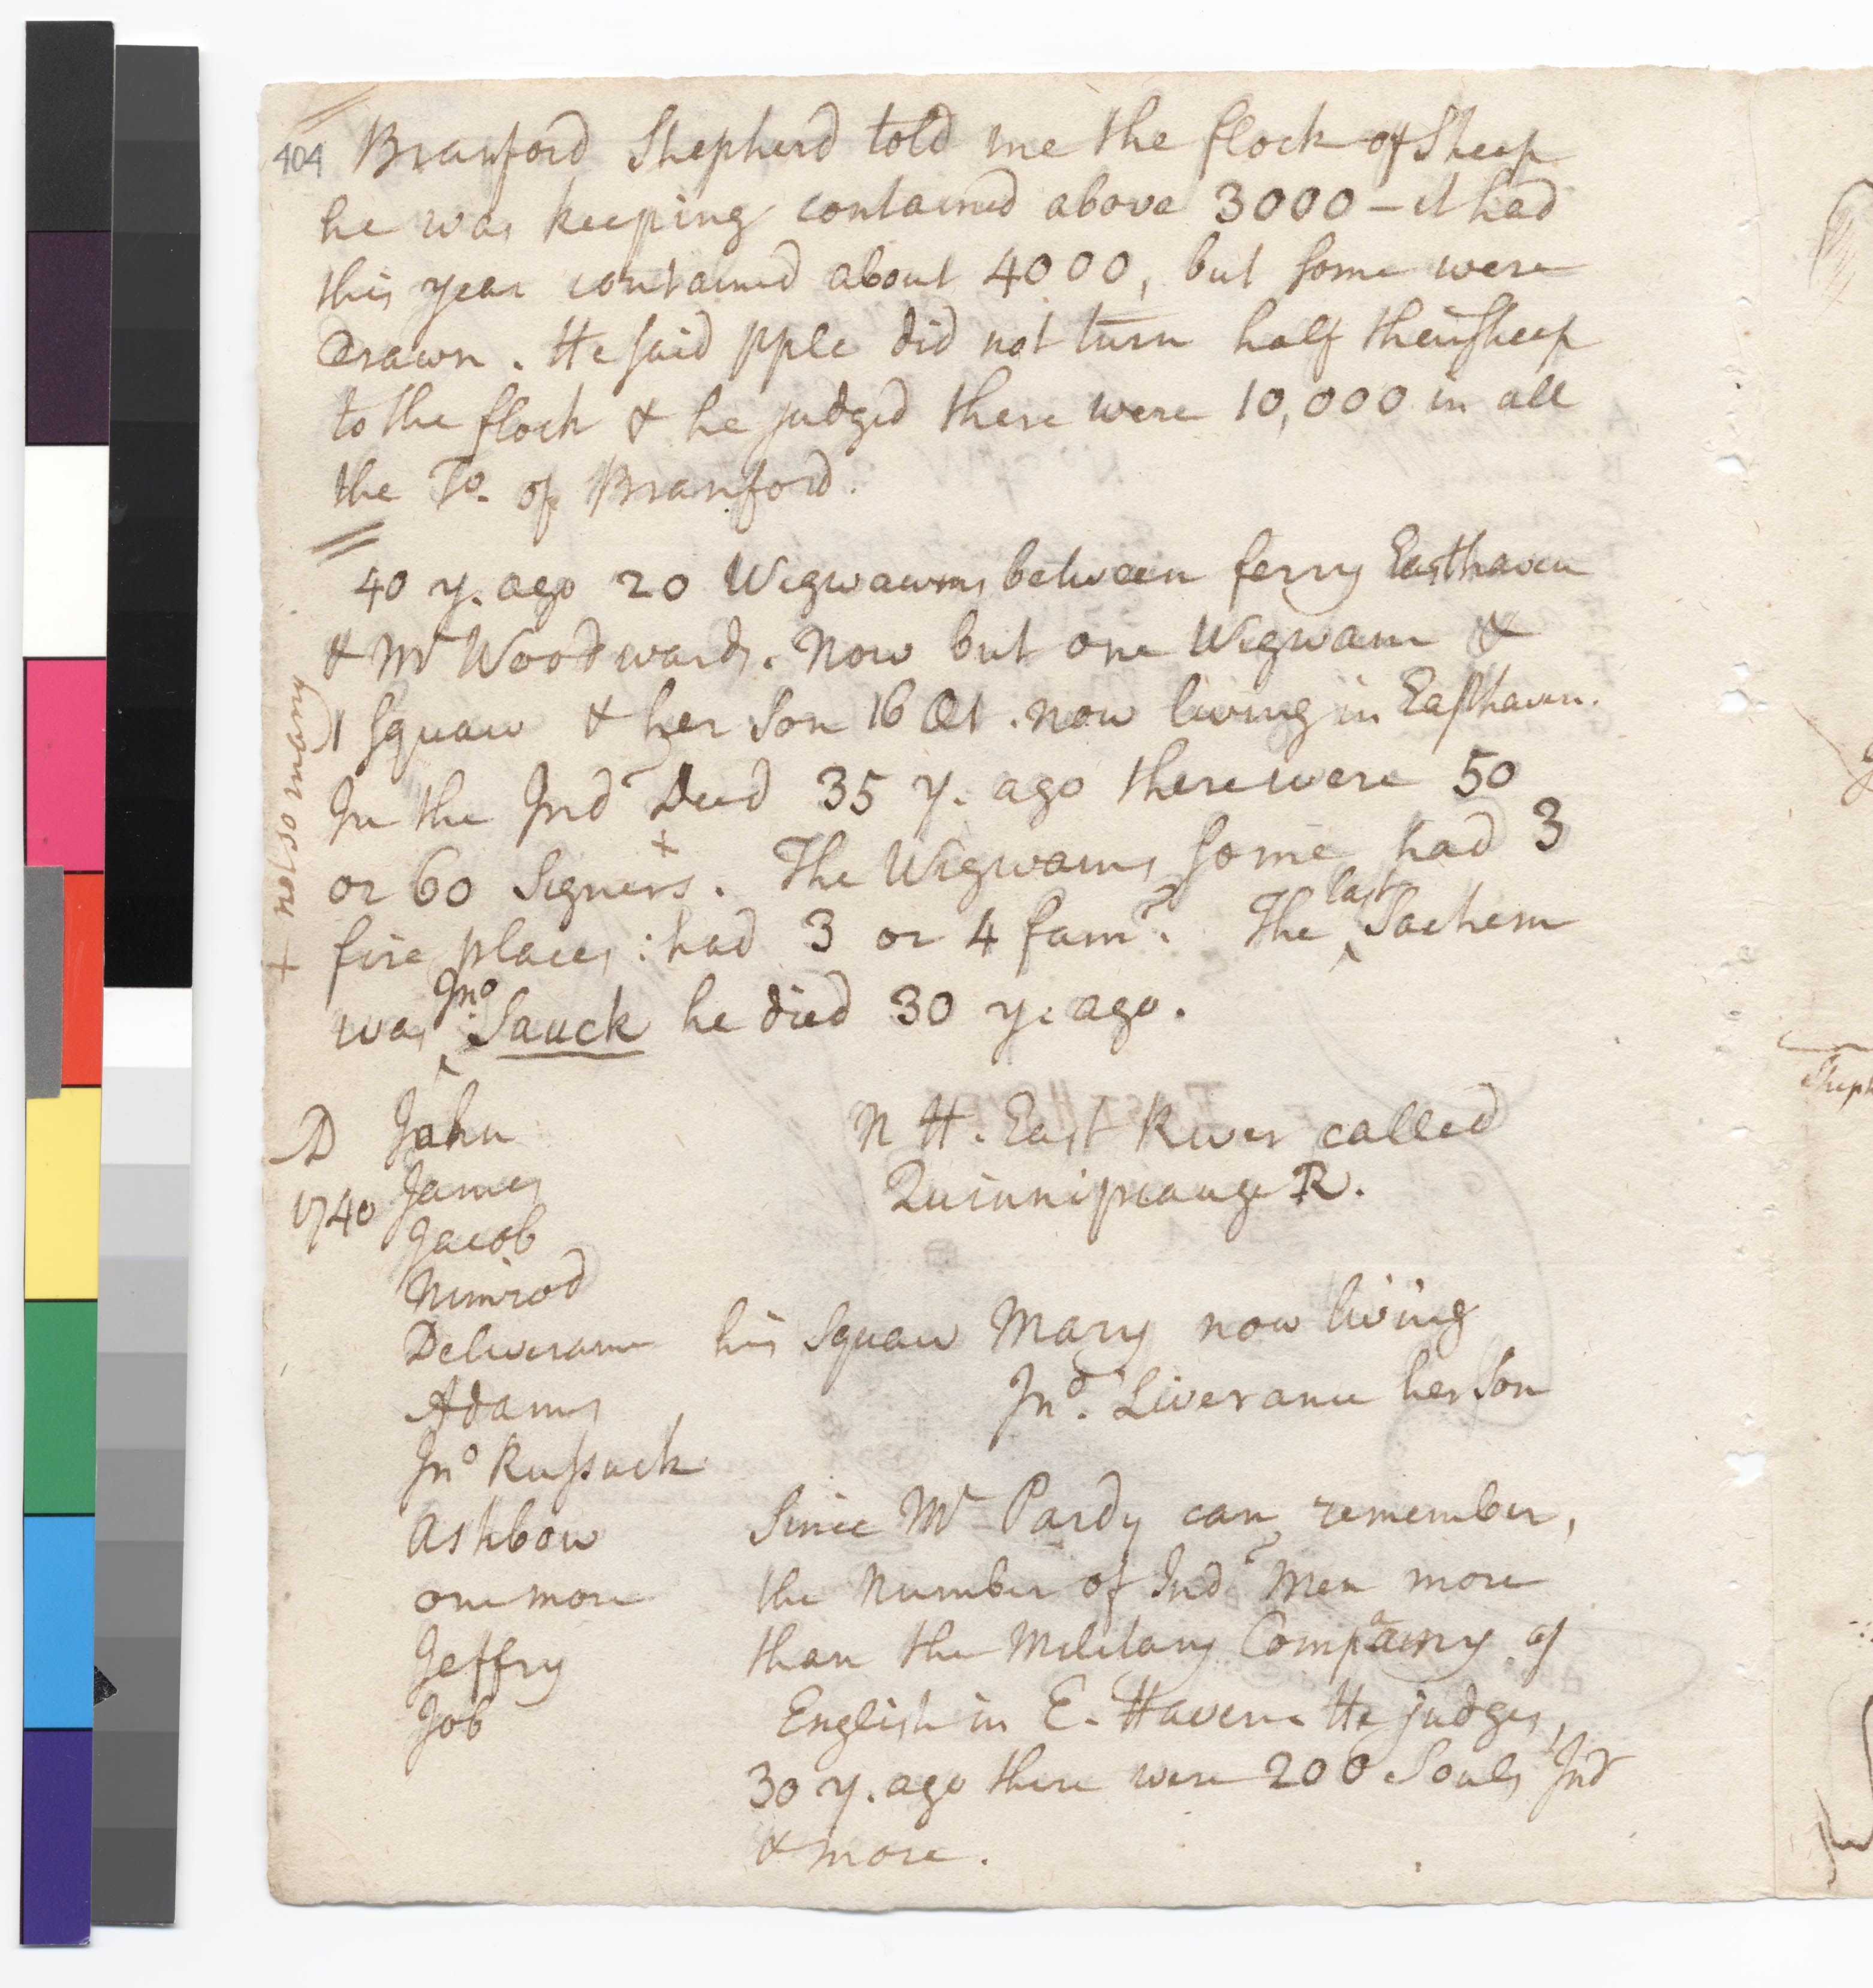 404 Branford Shepherd told me the flock of Sheep
he was keeping contained above 3000 – it had
this year contained about 4000, but some were
Drawn. He said pple did not turn half their sheep
to the flock & he judged there were 10,000 in all
the To. of Branford.
40 y. ago 20 Wigwawms between ferry Easthaven
& Mr Woodwards. Now but one Wigwam &
1 Squaw & her Son 16 Æt. now living in Easthaven.
In the Indn Deed 35 y. ago there were 50
or 60 Signers. + The Wigwams some had 3
fire places: had 3 or 4 fam. The last Sachem
was Jno Sauck he died 30 y. ago.
+ not so many
D John
1740 James
Jacob
Nimrod
Deliverance his Squaw Mary now living
Jno. Liverance her Son
Adams
Jno Russuck
Ashbow
one more
Jeffry
Job
N H. East River called
Quinnipiauge R.
Since Mr Pardy can remember,
the Number of Indn Men more
than the Military Company of
English in E. Haven. He judges,
30 y. ago there were 200 Souls Indn
& more.
Sheph